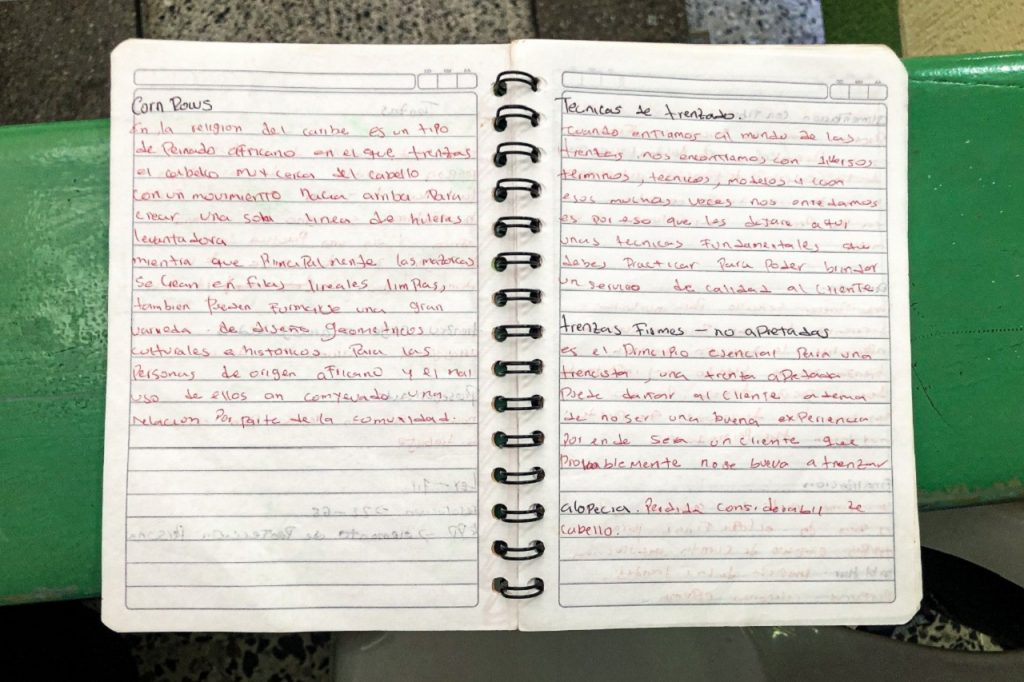 Corn Rows
En la religion del caribe es un tipo
de Peinado africano en el que trenzas
el cabello muy cerca del cabello
con un movimiento hacia arriba Para
crear una sola linea de hileras
levantadora
mientra que Principalmente las mazorcas
se crean en filas lineales limpias,
tambien Pueden Formarse una gran
varieda de diseño geometricos
culturales e historicos. Para las
Personas de origen africano y el mal
uso de ellos an comyevado una
relacion Por parte de la comunidad.
Tecnicas de trenzado.
cuando entramos al mundo de las
trenzas nos encontramos con diversos
terminos, tecnicos, modelos y con
esos muchas veces nos enredamos
es por eso que les dejare aqui
unas tecnicas fundamentales que
debes Practicar Para Poder brindar
un servicio de calidad al cliente
trenzas Firmes - no apretadas
es el Principio esencial Para una
trencista, una trenza apretada
Puede dañar al cliente adema
de no ser una buena experiencia
Por ende sera un cliente que
Probablemente no se bueva a trenzar
alopecia. Perdida considerabil de
cabello.